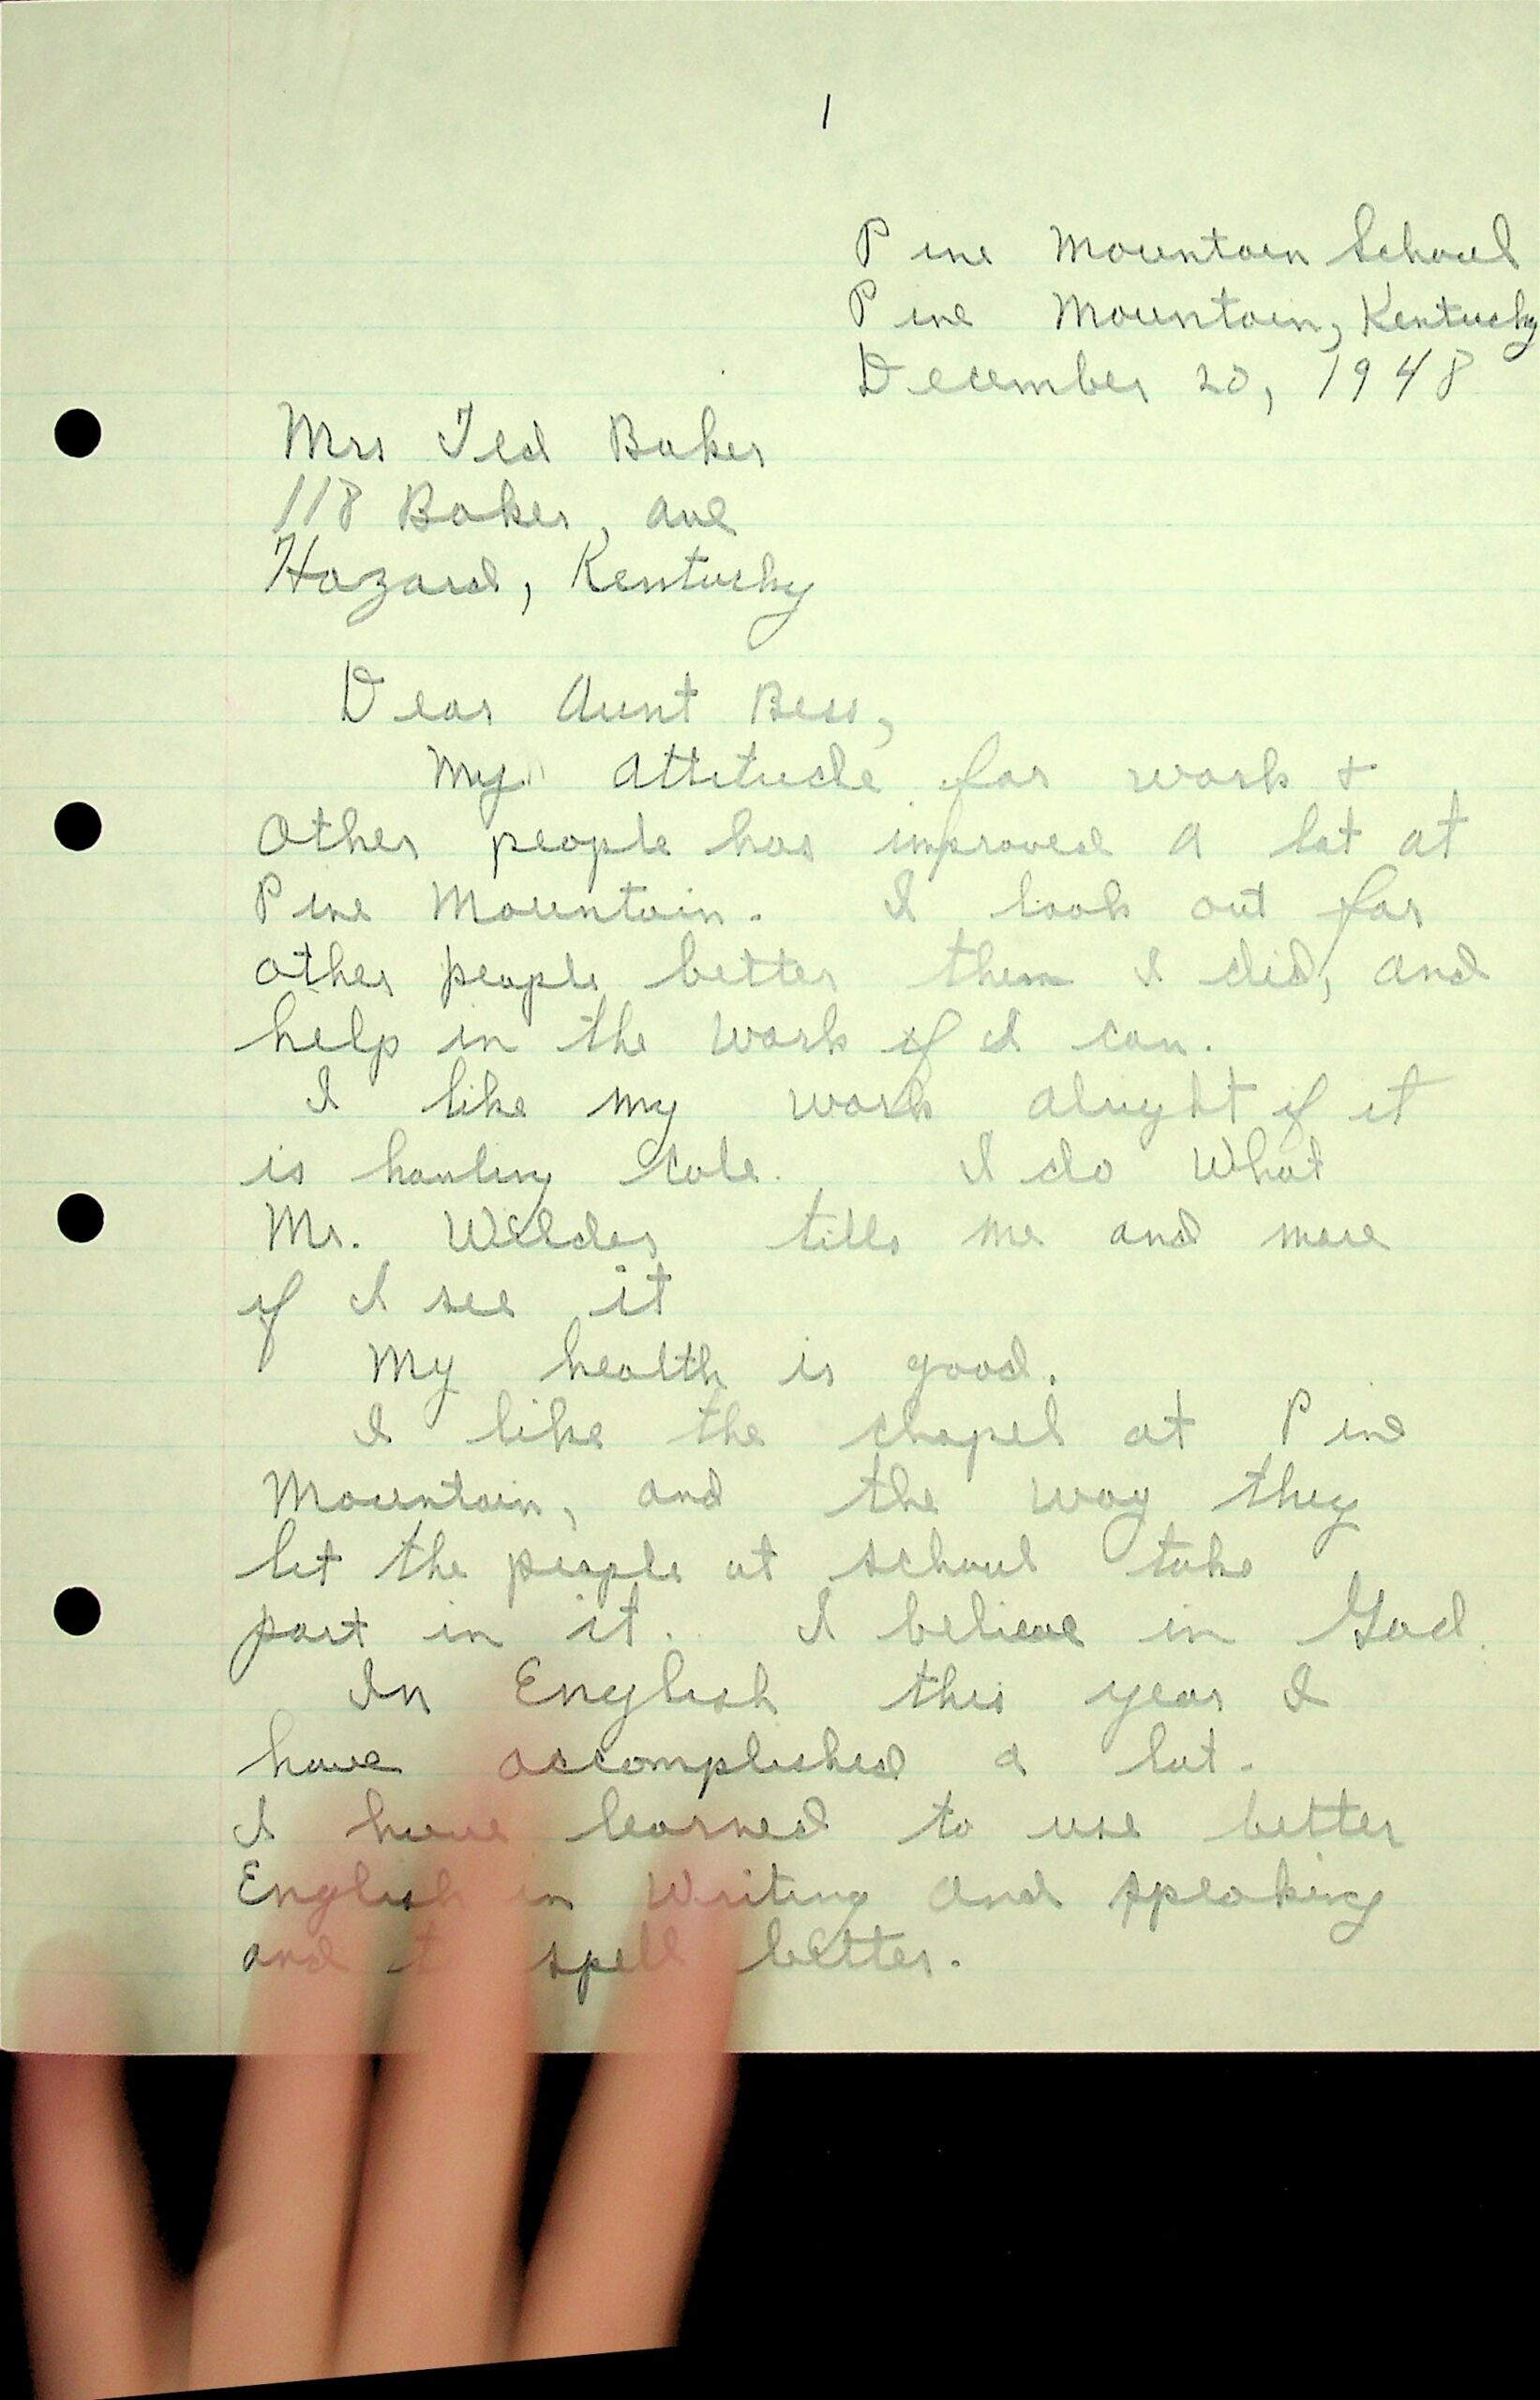 1
Pine Mountain School
Pine Mountain, Kentucky
December 20, 1948
Mrs Ted Baker
118 Baker, ave
Hazard, Kentucky
Dear Aunt Bess,
My attitude for work +
Other people has improved a lot at
Pine Mountain. I look out for
other people better them I did, and
help in the work if I can.
I like my work alright if it
is hauling cole. I do What
Mr. Wilder tills me and more
if I see it
My health is good.
I like the chapel at Pine
Mountain, and the way they
let the people at school take
part in it. I believe in God.
In English this year I
have accomplished a lot.
I have learned to use better
English in Writing and speaking
and spell better.